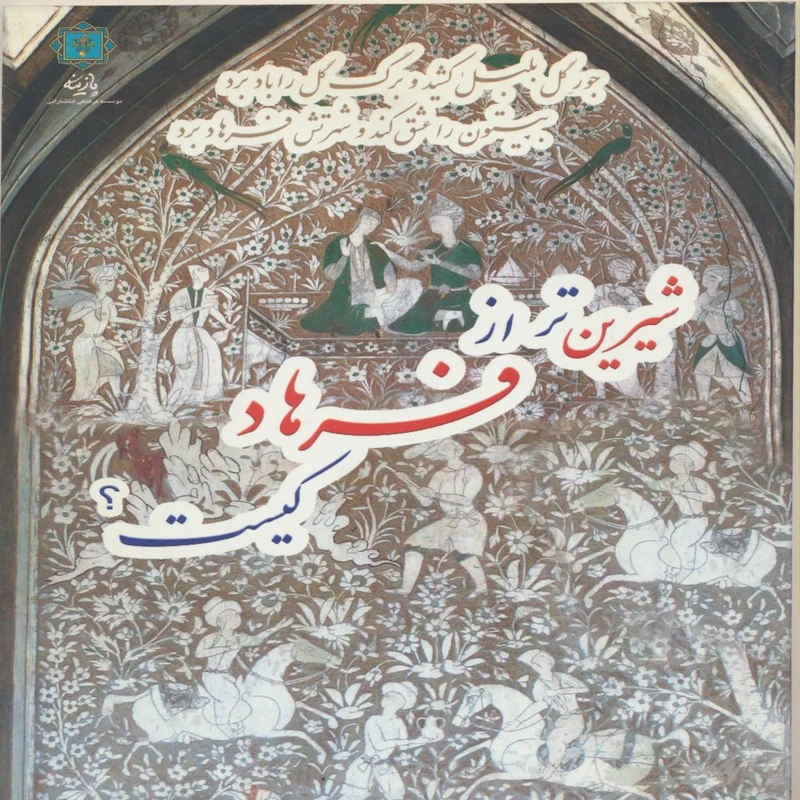 پازینه
موسسه فرهنگی انتشاراتی
جور گل بلبل کشید و برگ گل را باد برد
بیستون را عشق کند و شهرتش فرهاد برد
شیرین تر از
فرهاد
کیست ؟